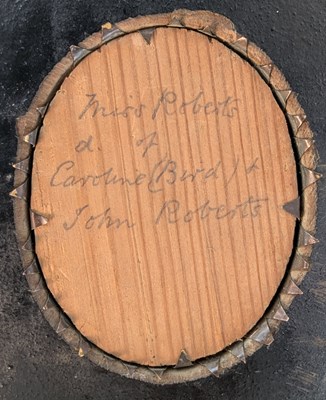 Miss Roberts
d. of
Caroline (Bird) &
John Roberts